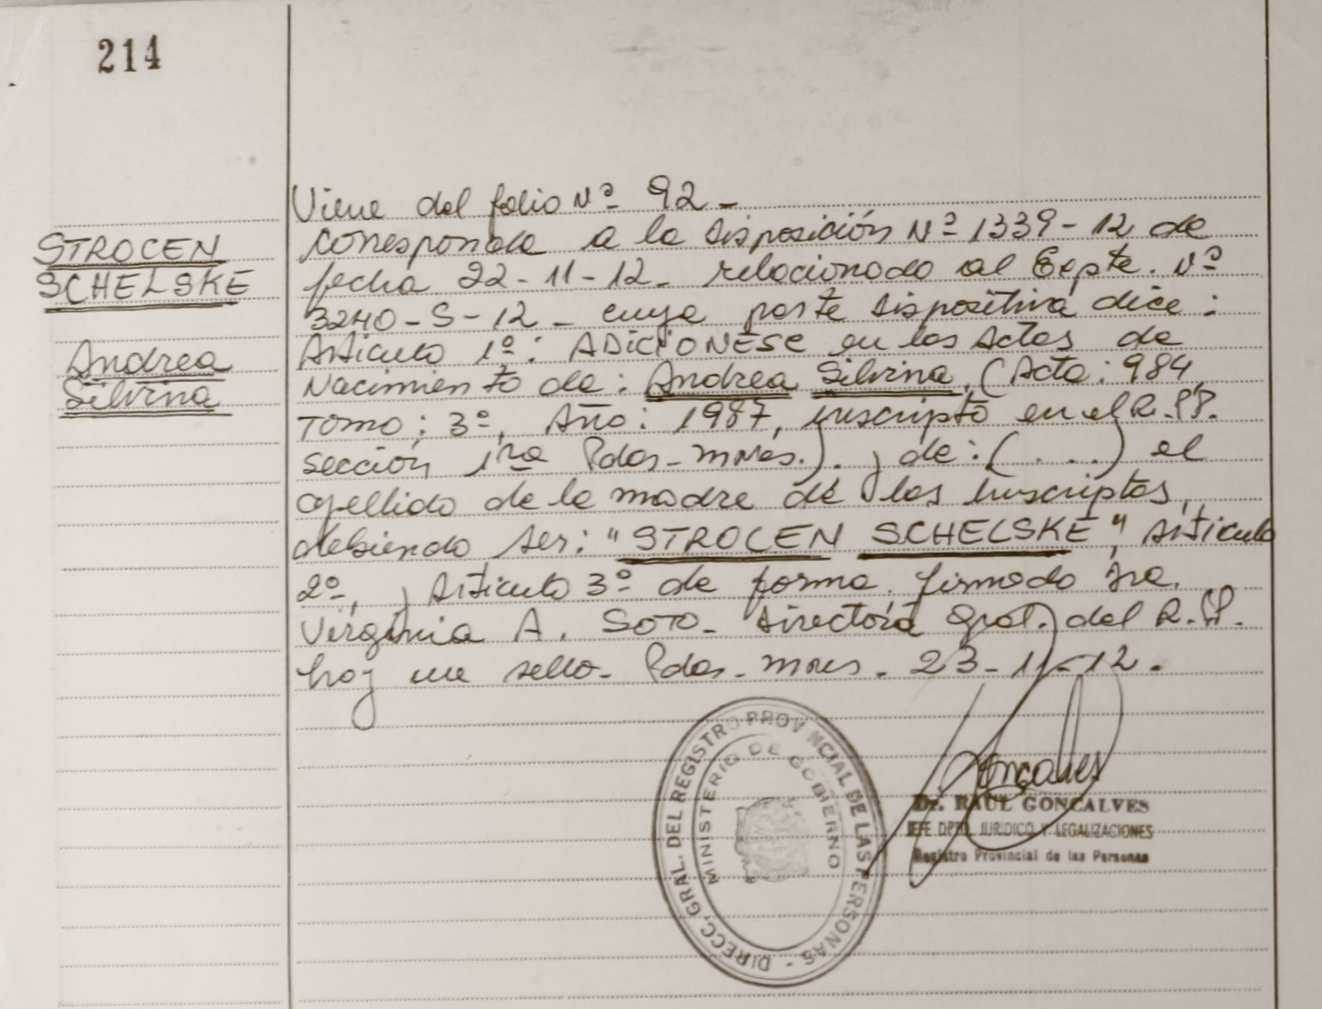 214
STROCEN
SCHELSKE
Andrea
Silvina
Viene del folio Nº 92 -
Corresponde a la disposición Nº 1339-12 de
fecha 22-11-12. relacionado al Expte. Nº
3240-S-12 - cuya parte dispositiva dice:
Artículo 1º: ADICIONESE en las Actas de
Nacimiento de: Andrea Silvina, (Acta: 984,
Tomo: 3º, Año: 1987, inscripto en el R.PP.
sección 1ra Pdas-mnes.)., de: (....) el
apellido de la madre de los inscriptos,
debiendo ser: "STROCEN SCHELSKE", Artículo
2º, , Artículo 3º de forma. firmado
Virginia A. SOTO - Directora Gral. del R.PP.
hoy un sello - Pdas-mnes. 23-11-12.
Dr. RAUL GONCALVES
JEFE DPTO. JURIDICO Y LEGALIZACIONES
Registro Provincial de las Personas
DIRECC. GRAL. DEL REGISTRO PROVINCIAL DE LAS PERSONAS -
MINISTERIO DE GOBIERNO